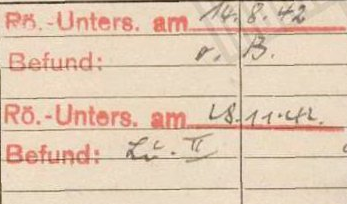 Rö.-Unters. am 14.8.42
Befund: o. B.
Rö.-Unters. am 28.11.42.
Befund: Lù. II